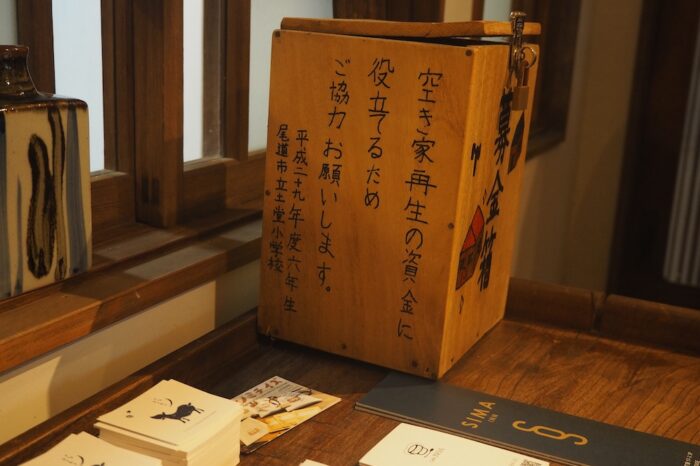 空き家再生の資金に
役立てるため
ご協力お願いします。
平成二十九年度六年生
尾道市立土堂小学校
募金箱
SIMA